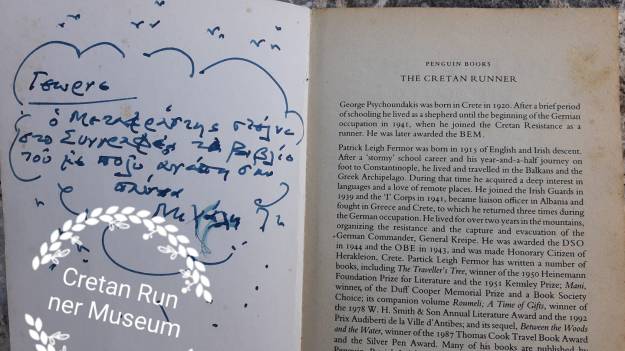 Γεωργε
ὁ Μεταφράστης
στο Συγγραφέα το βιβλίο
του με αγάπη
PENGUIN BOOKS
THE CRETAN RUNNER
George Psychoundakis was born in Crete in 1920. After a brief period
of schooling he lived as a shepherd until the beginning of the German
occupation in 1941, when he joined the Cretan Resistance as a
runner. He was later awarded the BEM.
Patrick Leigh Fermor was born in 1915 of English and Irish descent.
After a 'stormy' school career and his year-and-a-half journey on
foot to Constantinople, he lived and travelled in the Balkans and the
Greek Archipelago. During that time he acquired a deep interest in
languages and a love of remote places. He joined the Irish Guards in
1939 and the 'I' Corps in 1941, became liaison officer in Albania and
fought in Greece and Crete, to which he returned three times during
the German occupation. He lived for over two years in the mountains,
organizing the resistance and the capture and evacuation of the
German Commander, General Kreipe. He was awarded the DSO
in 1944 and the OBE in 1943, and was made Honorary Citizen of
Herakleion, Crete. Partick Leigh Fermor has written a number of
books, including The Traveller's Tree, winner of the 1950 Heinemann
Foundation Prize for Literature and the 1951 Kemsley Prize; Mani,
winner, of the Duff Cooper Memorial Prize and a Book Society
Choice; its companion volume Roumeli; A Time of Gifts, winner of
the 1978 W. H. Smith & Son Annual Literature Award and the 1992
Prix Audiberti de la Ville d'Antibes; and its sequel, Between the Woods
and the Water, winner of the 1987 Thomas Cook Travel Book Award
and the Silver Pen Award. Many of his books are published by
Cretan Run
ner Museum